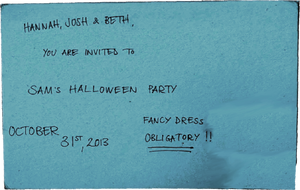 HANNAH, JOSH & BETH,
YOU ARE INVITED TO
SAM'S HALLOWEEN PARTY
FANCY DRESS
OCTOBER
OBLIGATORY !!
31ST, 2013